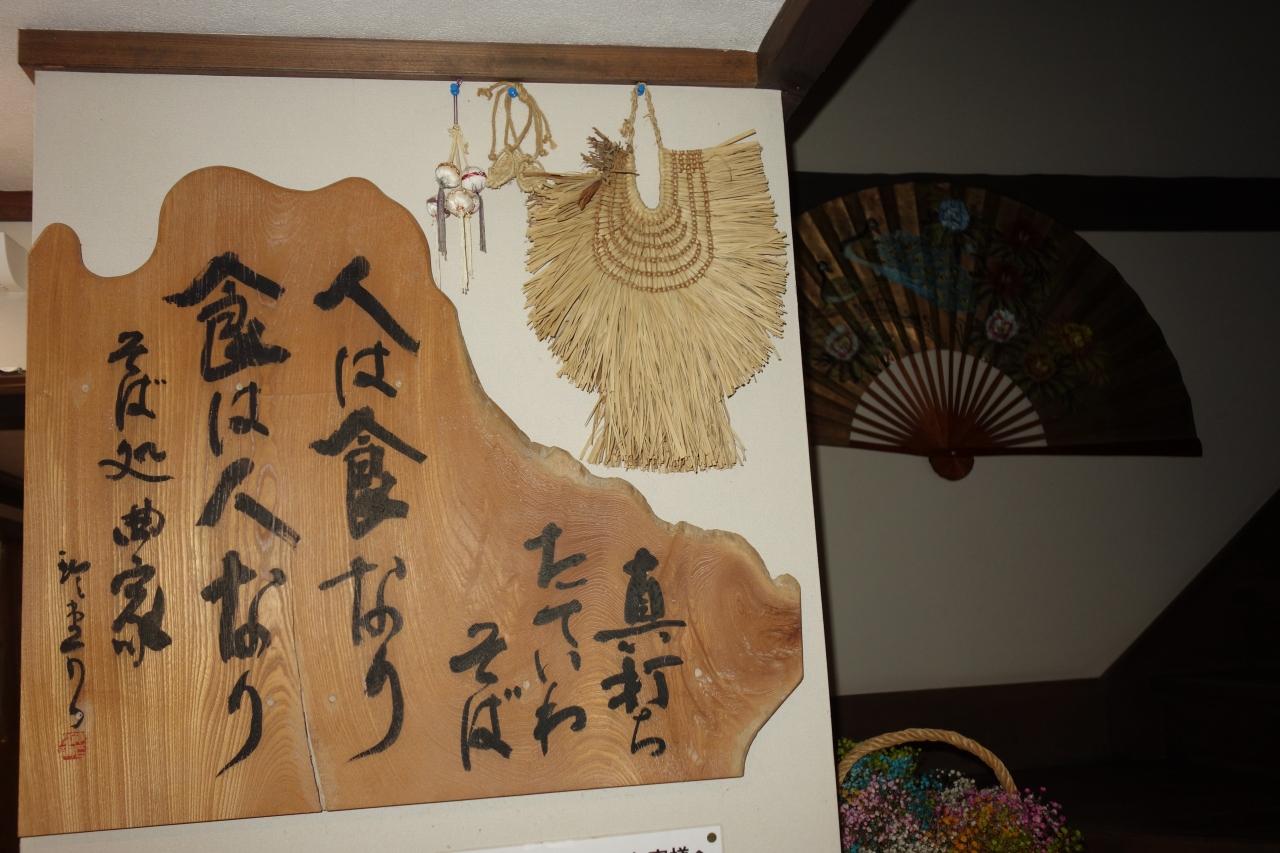 真打ち
たていわ
そば
人は食なり
食は人なり
そば処 曲家